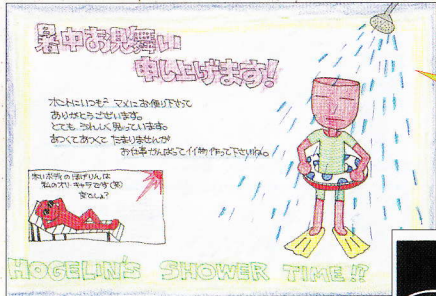 暑中お見舞い
申し上げます!
ホントにいつも? マメにお便り下さって
ありがとうございます。
とても、うれしく思っています。
あつくてあつくて たまりませんが
お仕事がんばってイイ物作って下さいね。
赤いボディのほげりんは
私のオリ・キャラです(笑)
HOGELIN'S SHOWER TIME!!